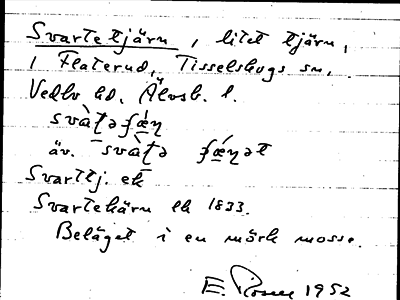 Svarte tjärn, litet tjärn,
i Flaterud, Tisselskogs sn,
Vedbo hd. Älvsb. l.
svàʈə ʃæ̀ɳ
äv. svàʈə ʃǽɳət
Svarttj. ek
Svartekärn ek 1833.
Beläget i en mörk mosse.
E. Rosen 1952